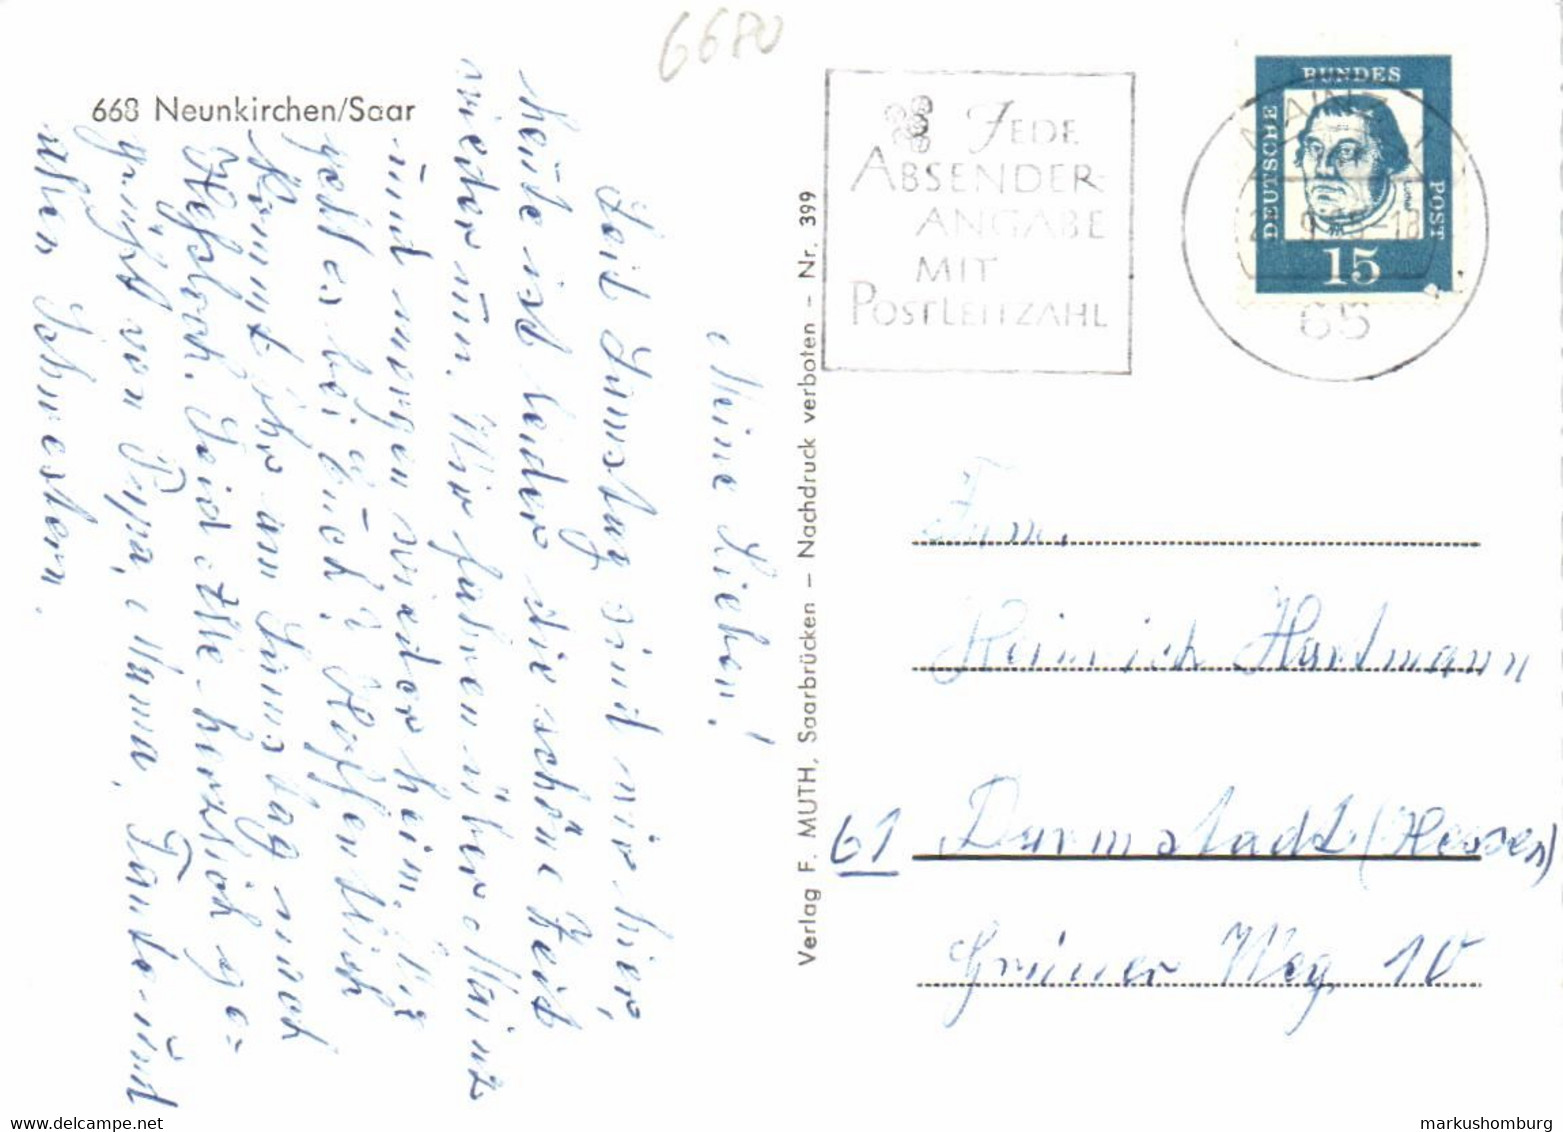 6680
668 Neunkirchen/Saar
Meine Lieben!
Seit Samstag sind wir hier,
heute ist leider die schöne Zeit
wieder um. Wir fahren über Mainz
und morgen wieder heim. Wie
geht es bei Euch? Hoffentlich
kommt Ihr am Samstag nach
Heßloch. Seid Alle herzlich ge=
grüßt von Papa, Mama, Tante und
allen Schwestern.
Verlag F. MUTH, Saarbrücken – Nachdruck verboten – Nr. 399
JEDE
ABSENDER-
ANGABE
MIT
POSTLEITZAHL
MAINZ
9.65-18
65
DEUTSCHE
BUNDES
POST
Luther
15
Fam.
Heinrich Hartmann
61 Darmstadt (Hessen)
Grüner Weg 10
markushomburg